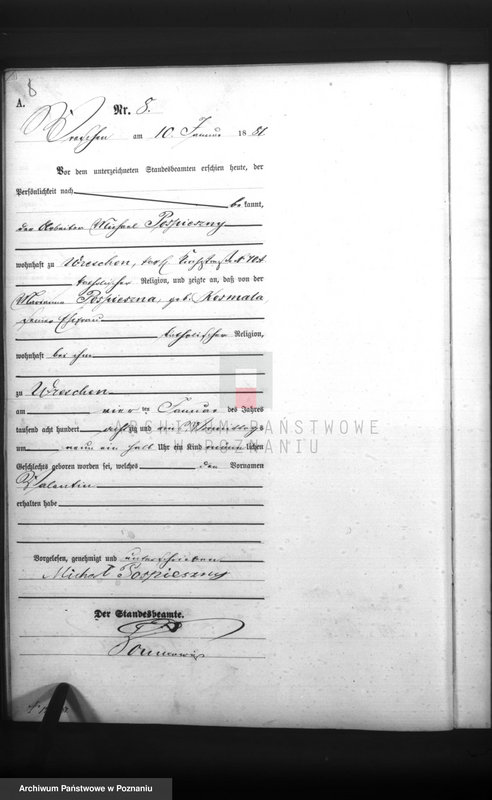 8
A.
Nr. 8.
Wreschen am 10 Januar 1881
Vor dem unterzeichneten Standesbeamten erschien heute, der
Persönlichkeit nach
bekannt,
der Arbeiter Michael Pospieszny
wohnhaft zu Wreschen,
katholischer Religion, und zeigte an, daß von der
Marianna Pospieszna, geb. Kosmala,
seiner Ehefrau
katholischer Religion,
wohnhaft bei ihm
zu Wreschen
am vier ten Januar des Jahres
tausend acht hundert achtzig und eins Vormittags
um neun ein halb Uhr ein Kind männlichen
Geschlechts geboren worden sei, welches den Vornamen
Valentin
erhalten habe
ARCHIWUM PAŃSTWOWE
W POZNANIU
Vorgelesen, genehmigt und unterschrieben
Michał Pospieszny
Der Standesbeamte.
Archiwum Państwowe w Poznaniu